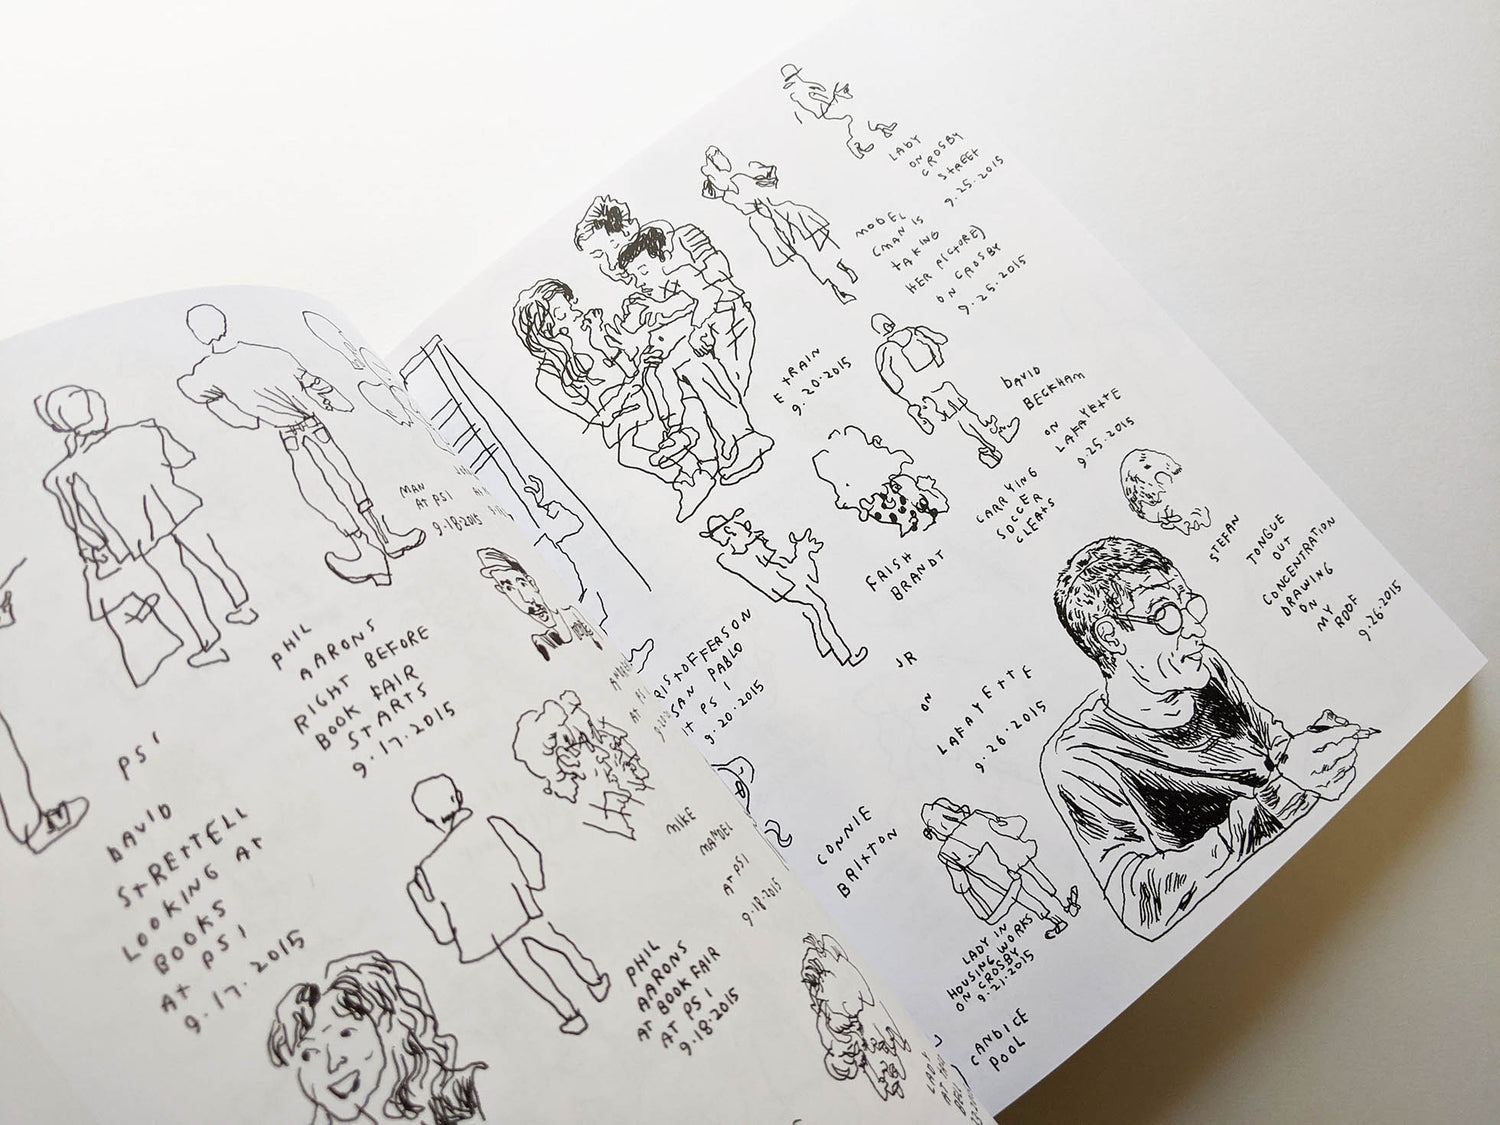 MAN
AT PS1
9.18.2015
PHIL
AARONS
RIGHT BEFORE
BOOK FAIR
STARTS
9.17.2015
PS1
DAVID
STRETTELL
LOOKING AT
BOOKS
AT PS1
9.17.2015
MIKE
AT PS1
9.18.2015
PHIL
AARONS
AT BOOK FAIR
AT PS1
9.18.2015
LADY
ON
CROSBY
STREET
9.25.2015
MODEL
(MAN IS
TAKING
HER PICTURE)
ON CROSBY
9.25.2015
E TRAIN
9.20.2015
DAVID
BECKHAM
ON
LAFAYETTE
9.25.2015
CARRYING
SOCCER
CLEATS
FRISH
BRANDT
STEFAN
TONGUE
OUT
CONCENTRATION
DRAWING
ON
MY
ROOF
9.26.2015
RISTOFFERSON
SAN PABLO
AT PS1
9.20.2015
JR
ON
LAFAYETTE
9.26.2015
CONNIE
BRITTON
LADY IN
HOUSING WORKS
ON CROSBY
9.21.2015
CANDICE
POOL